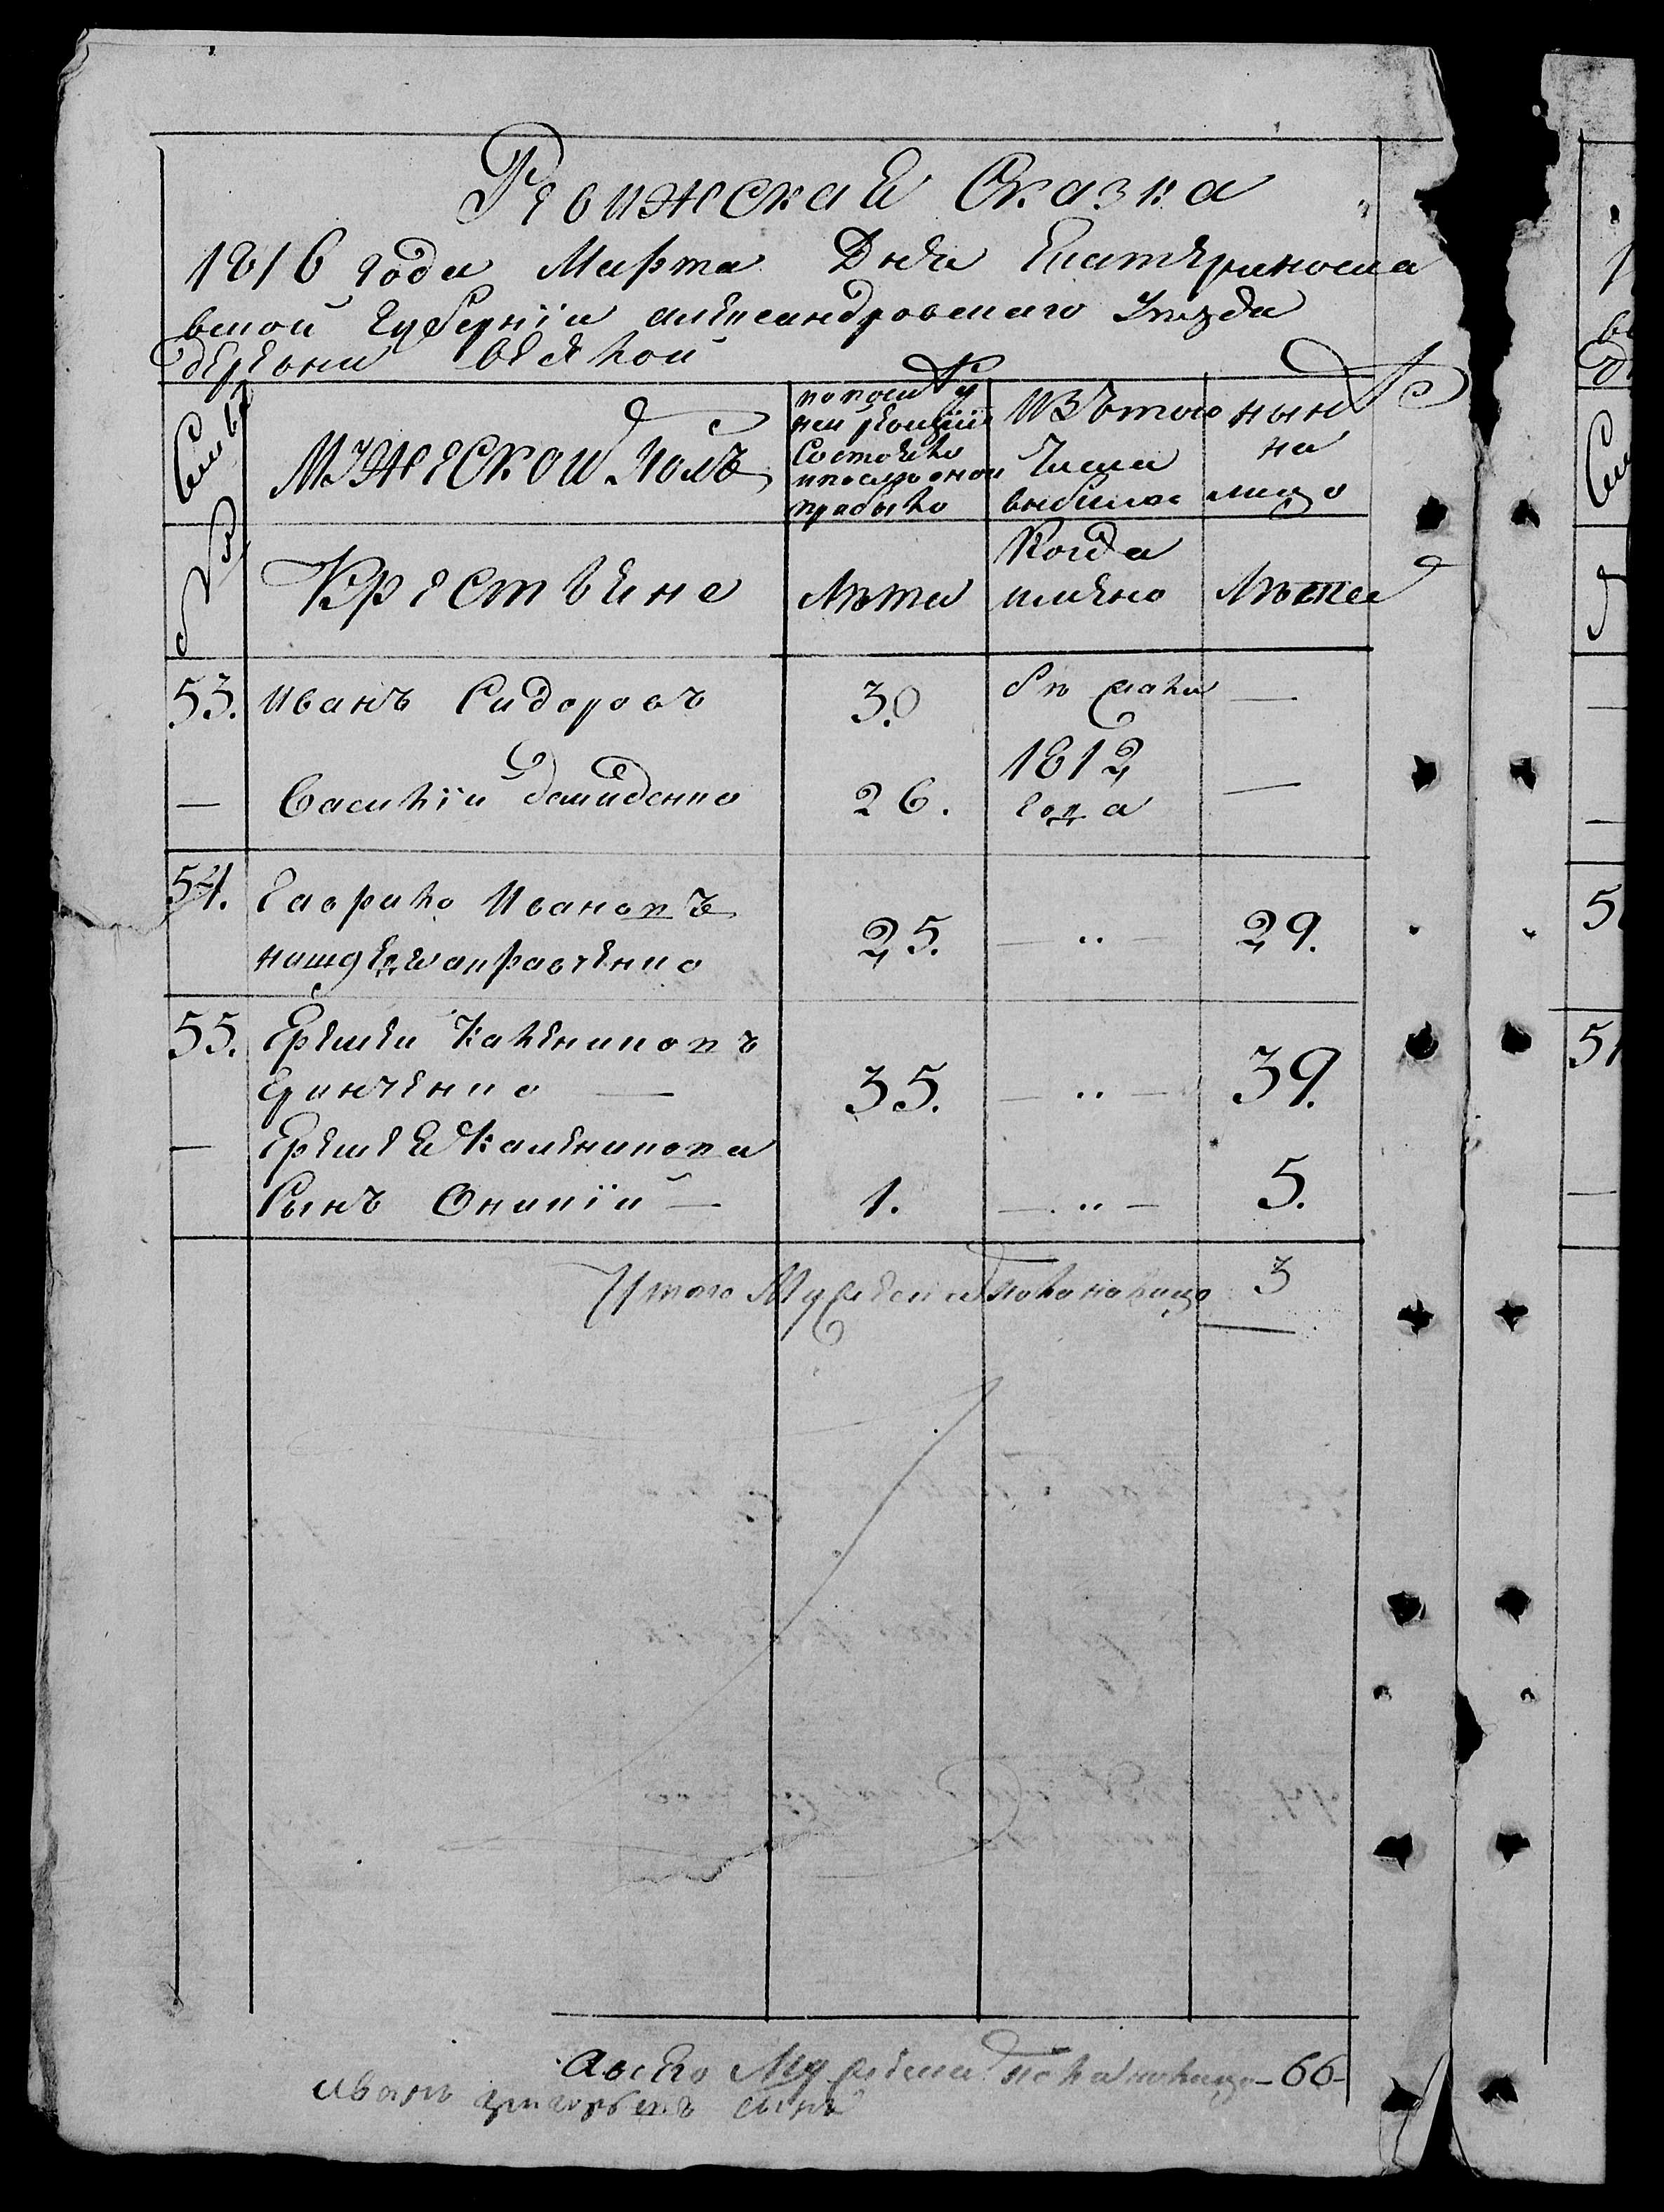 Ревижская Сказка
1816 года Марта Дня Екатериносла
вской Губерніи александровскаго Уезда
деревни
Мужеской Полъ
по послед
ней ревизіи
Состояло
и после оной
прибыло
Изъ того
Числа
выбило
ныне
на
лицо
Крестьяне
Лета
Когда
имено
Лета
53. Иванъ Сидоровъ 30 —
— Василій демиденко 26. 1812 года —
54. Гаврило Ивановъ 25. — „ — 29.
55. Еремей Калениковъ
35. — „ — 39.
— Еремея Каленикова
Сынъ Оникій — 1. — „ — 5.
Итого Мужеска пола налицо 3
а всего Мужеска пола налицо - 66 -
иванъ сынъ